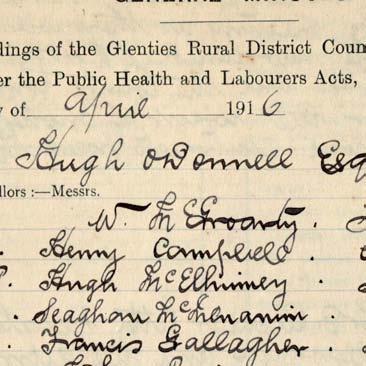 GENERAL MINU
dings of the Glenties Rural District Coun
er the Public Health and Labourers Acts,
y of April 1916
Hugh O'Donnell Esq
llors :—Messrs.
W. McGroarty.
Henny Campbell.
Hugh McElhinney
Seaghan McMenamin.
Francis Gallagher.